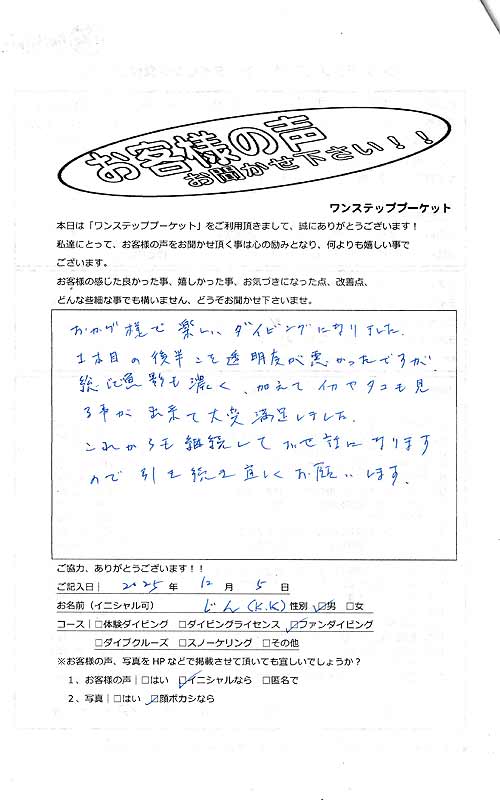 お客様の声
お聞かせ下さい！！
ワンステッププーケット
本日は「ワンステッププーケット」をご利用頂きまして、誠にありがとうございます！
私達にとって、お客様の声をお聞かせ頂く事は心の励みとなり、何よりも嬉しい事で
ございます。
お客様の感じた良かった事、嬉しかった事、お気づきになった点、改善点、
どんな些細な事でも構いません、どうぞお聞かせ下さいませ。
おかげ様で楽しいダイビングになりました。
1本目の後半こそ透明度が悪かったですが、
総じ魚影も濃く、加えてイカやタコも見
る事が出来て大変満足しました。
これからも継続してお世話になります
ので引き続き宜しくお願いします。
ご協力、ありがとうございます！！
ご記入日| 2025 年 12 月 5 日
お名前（イニシャル可） じん(K.K) 性別 ☑男 □女
コース| □体験ダイビング □ダイビングライセンス ☑ファンダイビング
□ダイブクルーズ □スノーケリング □その他
※お客様の声、写真をHPなどで掲載させて頂いても宜しいでしょうか？
1、お客様の声| □はい ☑イニシャルなら □匿名で
2、写真| □はい ☑顔ボカシなら